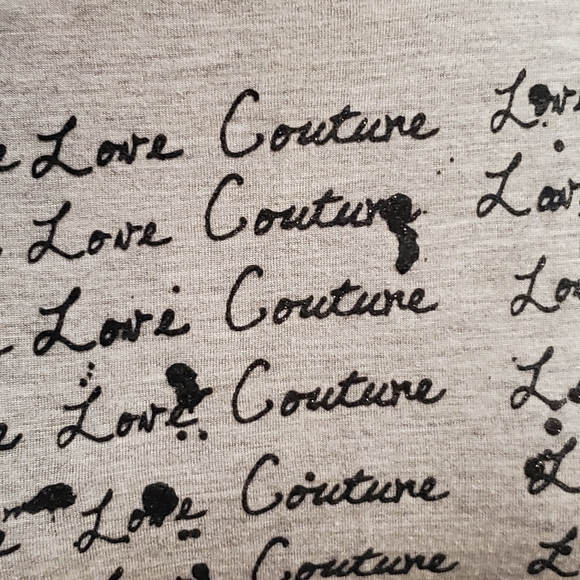 e Love Couture Love
Love Couture Love
Love Couture Lo
e Love Couture L
e Love Couture L
Couture L